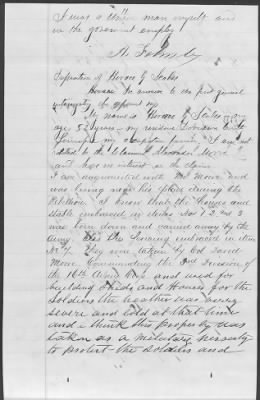 I was a Union man myself and
in the government employ
A. Johnson
Deposition of Horace G. Scales
Horace in answer to the first general
interrogatory he deposes says
My name is Horace G. Scales my
age 52 years my residence
I am not
related to the claimant Alexander Moore
and have no interest in the claim
I am acquainted with Mr Moore and
was living near his place during the
Rebellion I know that the House and
Stable embraced in items No 1 2 and 3
was torn down and carried away by the
army. Also the fencing embraced in item
They were taken by
Commanding the 2nd Division of
the 16th Army Corps and used for
building Sheds and Houses for the
Soldiers the weather was very
severe and cold at that time
and I think this property was
taken as a military necessity
to protect the Soldiers and